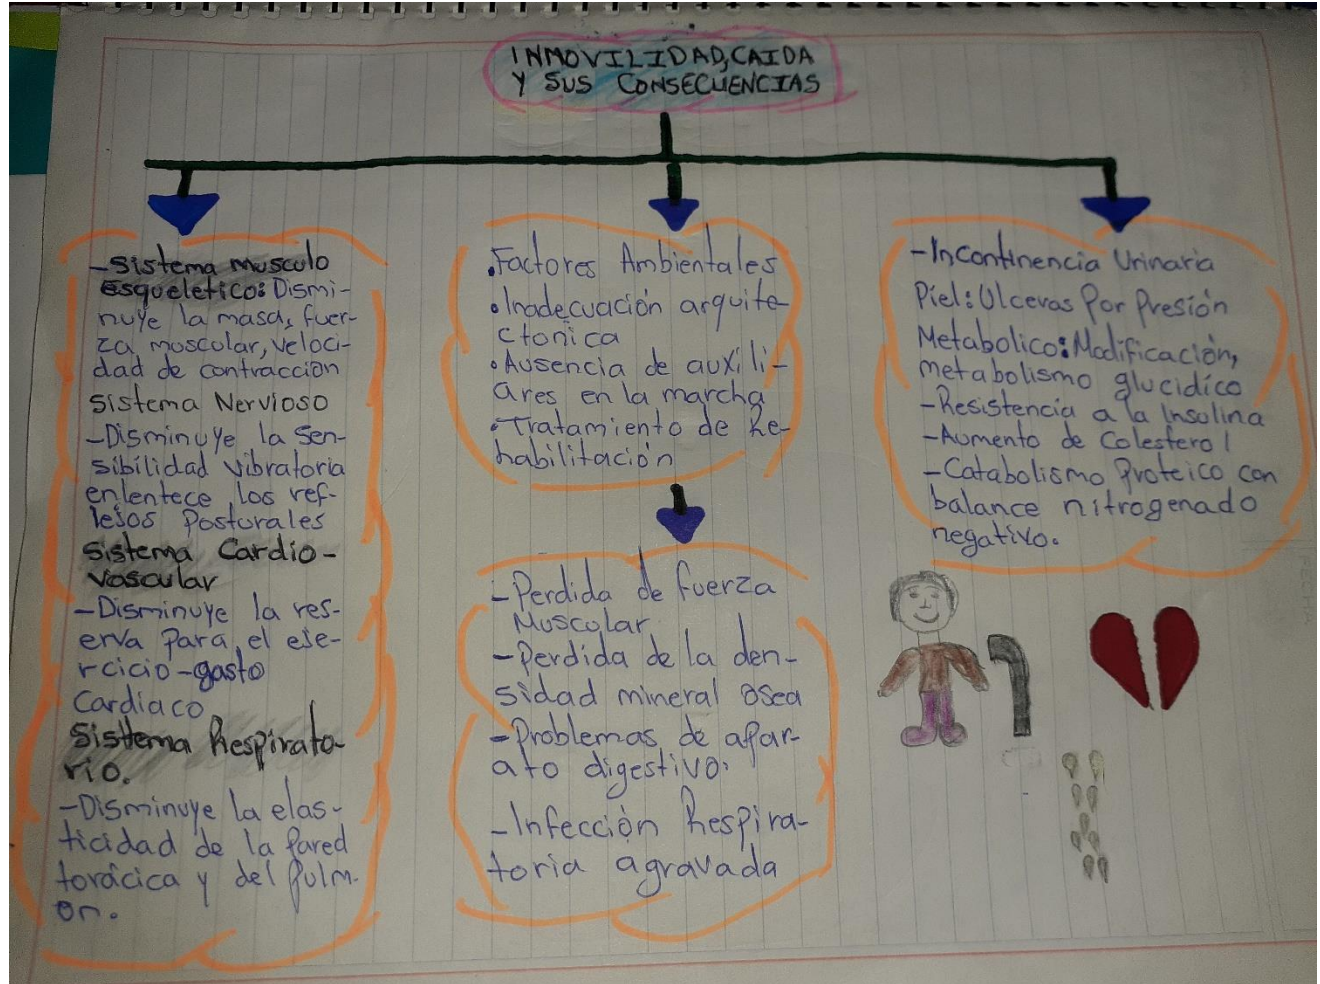 INMOVILIDAD, CAIDA
Y SUS CONSECUENCIAS
-Sistema musculo
esqueletico: Dismi-
nuye la masa, fuer-
za muscular, veloci-
dad de contracción
Sistema Nervioso
-Disminuye la sen-
sibilidad vibratoria
enlentece los ref-
lejos Posturales
Sistema Cardio-
vascular
-Disminuye la res-
erva Para el eje-
rcicio-gasto
Cardiaco
Sistema Respirato-
rio.
-Disminuye la elas-
ticidad de la Pared
torácica y del Pulm-
on.
.Factores Ambientales
•Inadecuación arquite-
ctonica
•Ausencia de auxili-
ares en la marcha
•Tratamiento de Re-
habilitación
-Perdida de fuerza
Muscolar
-Perdida de la den-
sidad mineral osea
-Problemas de apar-
ato digestivo.
-Infección Respira-
toria agravada
-Incontinencia Urinaria
Piel: Ulceras Por Presión
Metabolico: Modificación,
metabolismo glucidíco
-Resistencia a la Insulina
-Aumento de Colesterol
-Catabolismo Proteico con
balance nitrogenado
negativo.